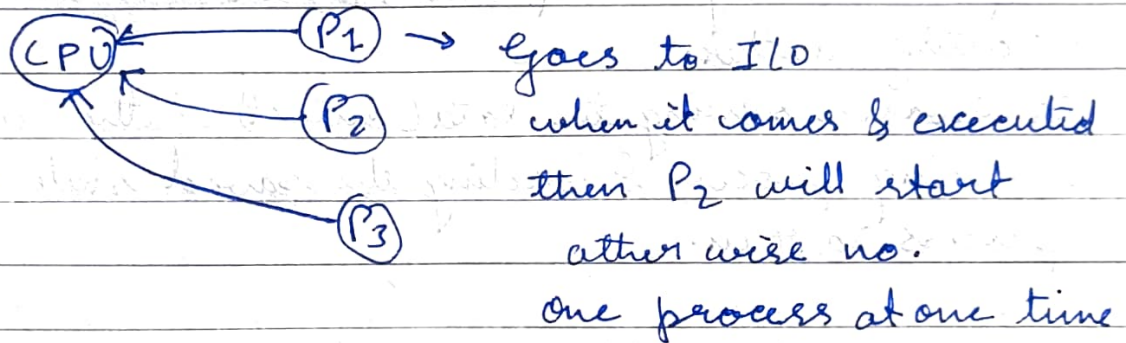 CPU
P1 → Goes to I/O
P2 when it comes & executed
then P2 will start
P3
other wise no.
one process at one time